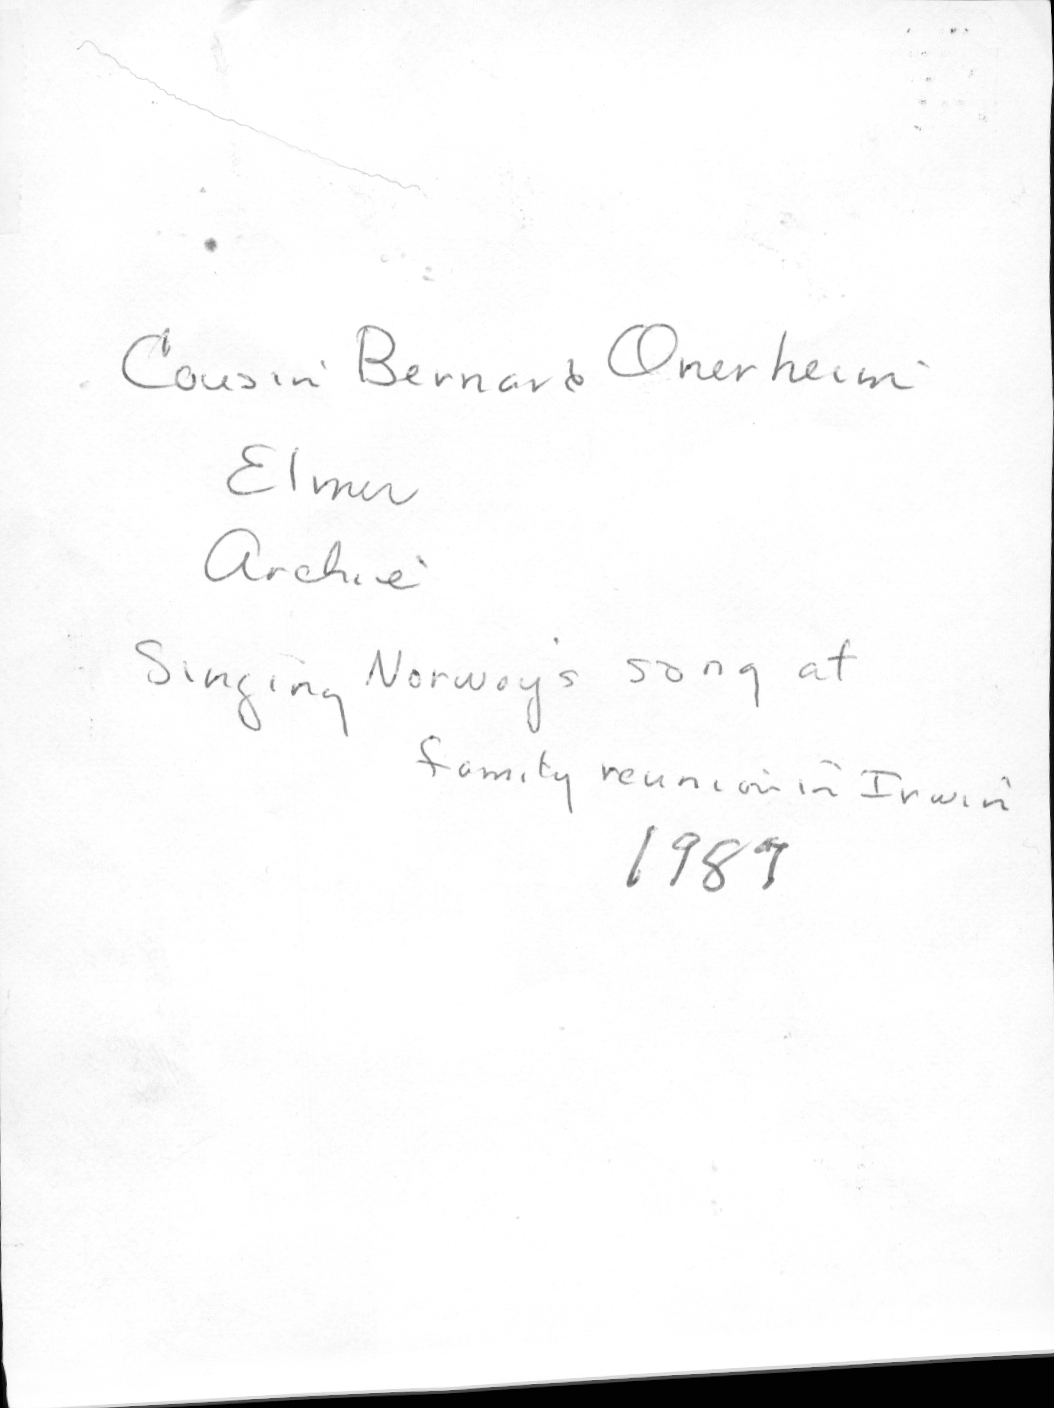 Cousin Bernard Onerheim
Elmer
Archie
Singing Norway's song at
family reunion in Irwin
1989